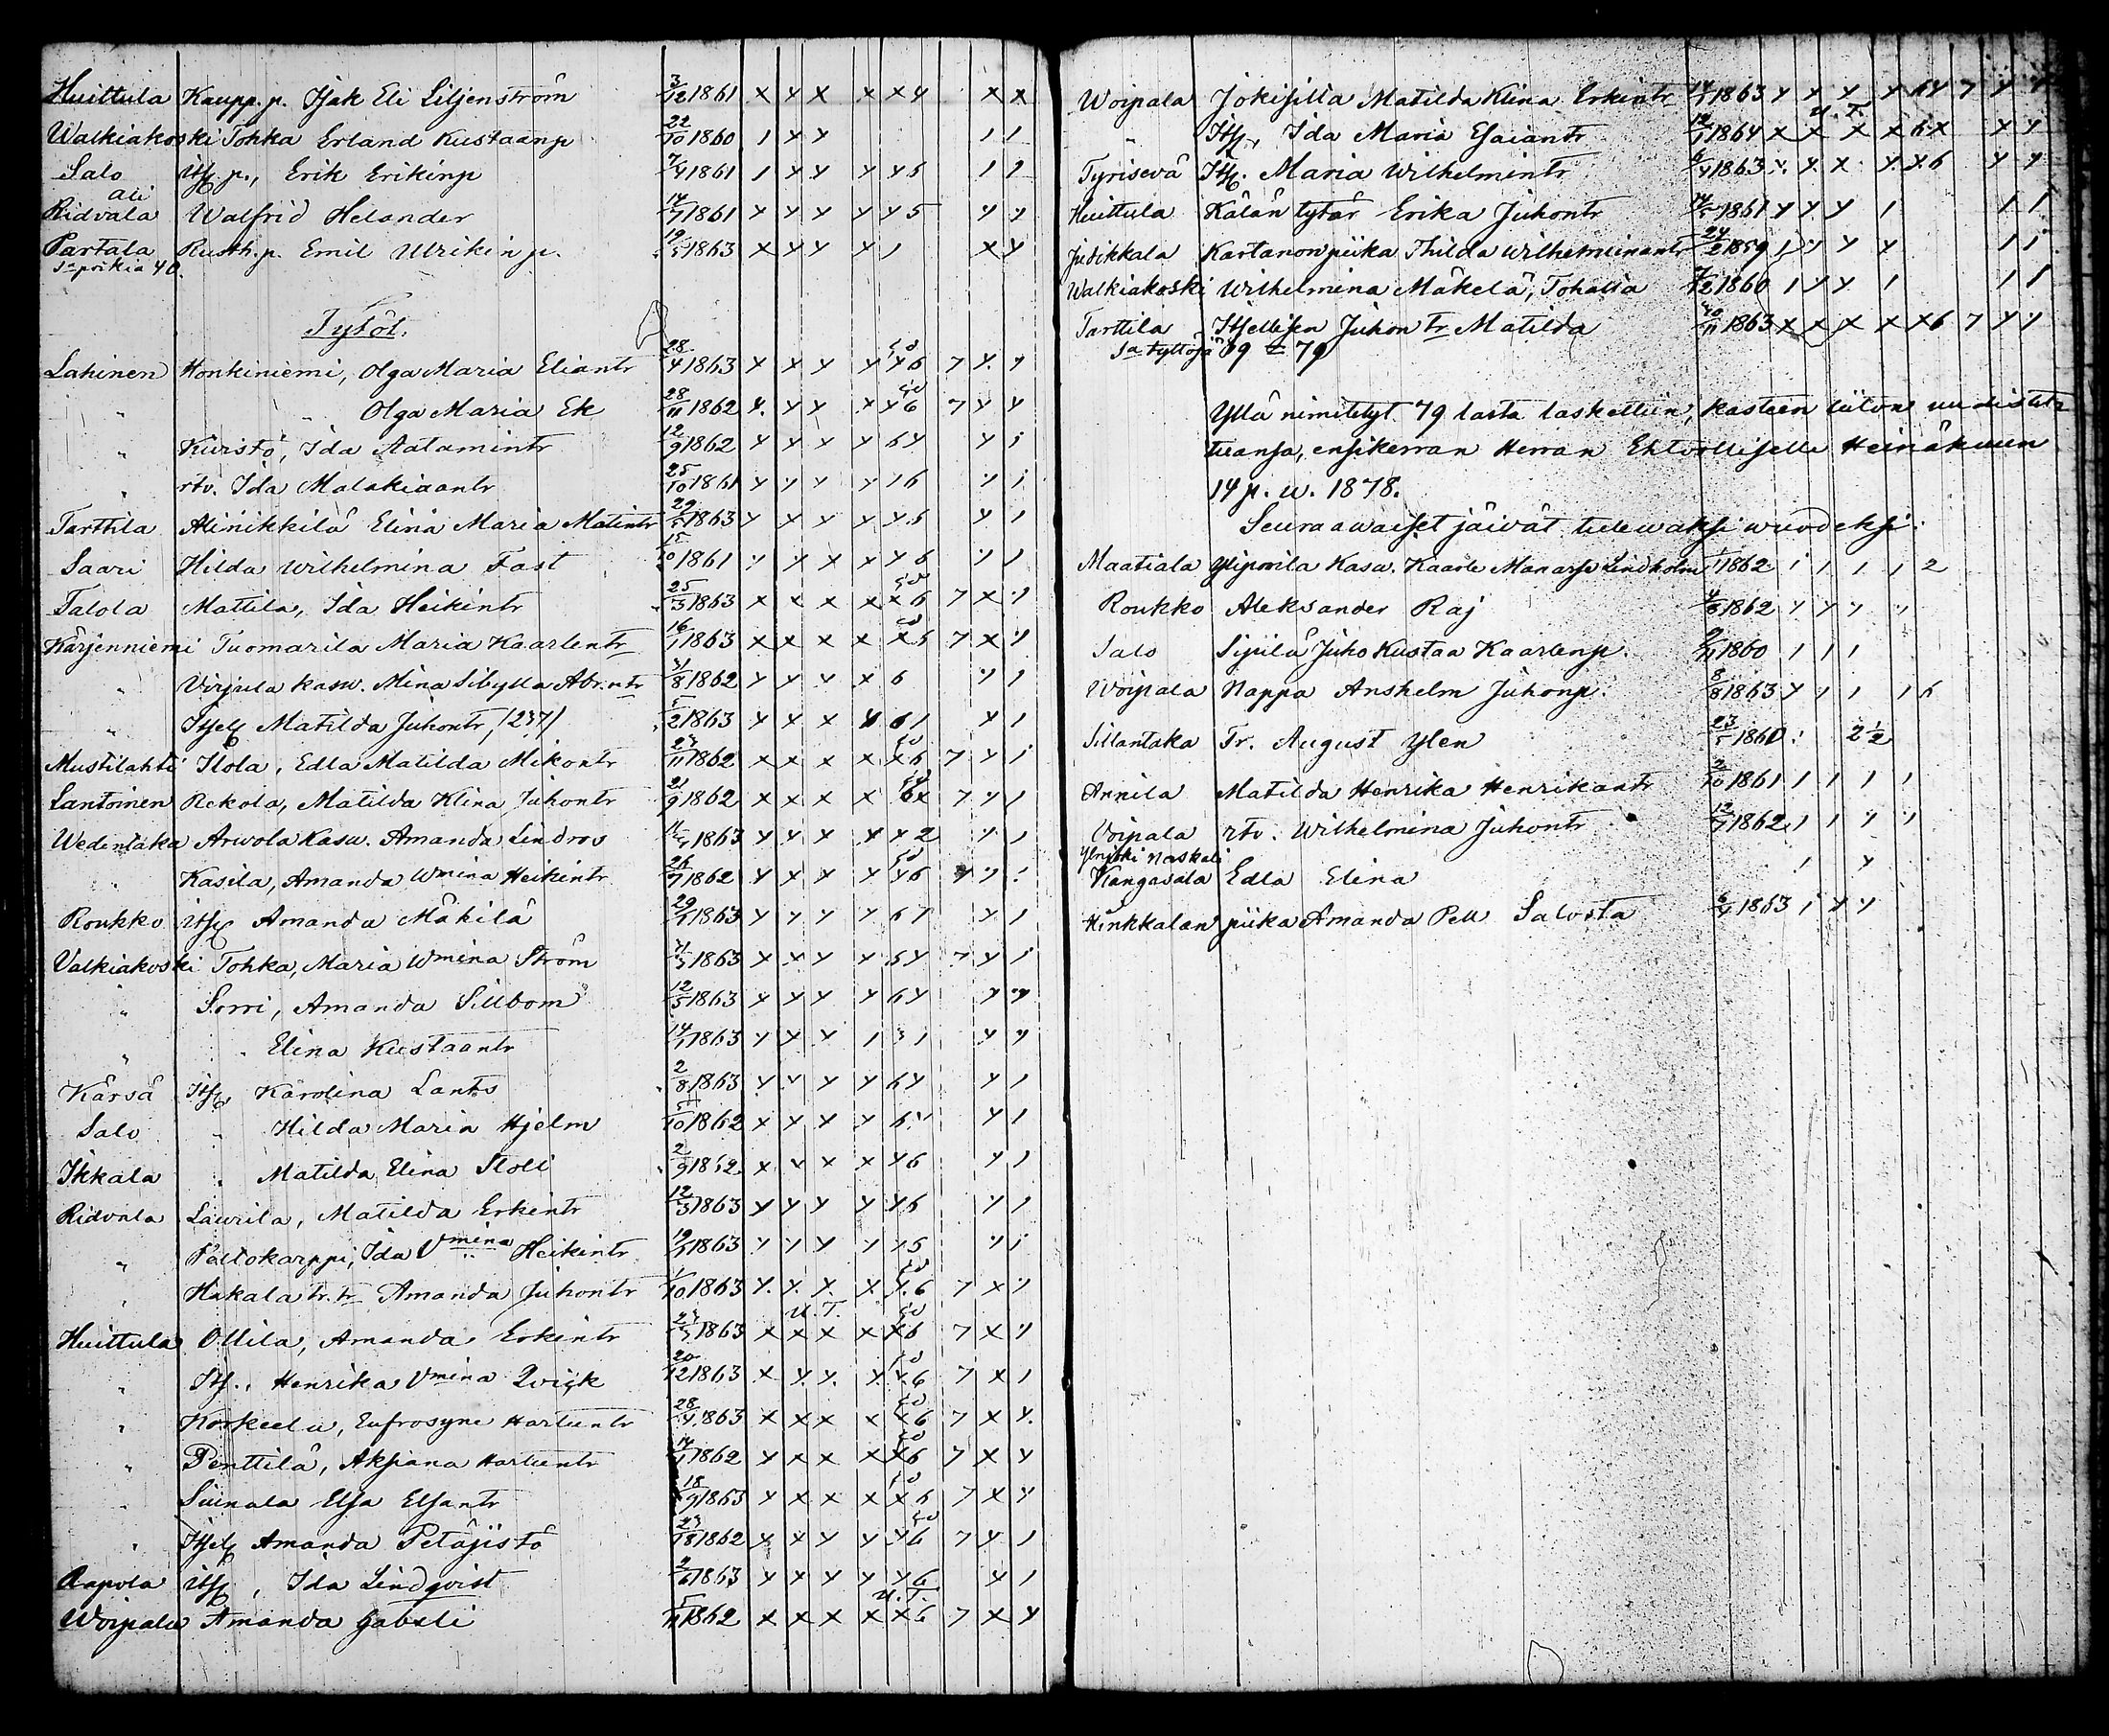 Huittula Kaupp. p. Isak Eli Liljenström 3/12 1861 x y x x x 4 x x
Walkiakoski Tohka Erland Kustaanp 22/10 1860 1 x x 1 1
Salo itsp p., Erik Erikinp 7/4 1861 1 y y y y 5 1 1
Ali Ridvala Walfrid Helander 14/7 1861 y y y y y 5 y y
Partala Rusth. p. Emil Ulrikin p. 19/5 1863 x y y y 1 x y
Sa poikia 40.
Tytöt.
Lahinen Honkiniemi, Olga Maria Eliantr 28/4 1863 y y y y y 6 7 y y
" " Olga Maria Ek 28/11 1862 y y y x y 6 7 y y
" Kuristo, Ida Aatamintr 12/9 1862 y y y y 6 y y 1
" rtv. Ida Malakiaantr 25/10 1861 y y y y 1 6 y 1
Tarttila Alinikkilä Elina Maria Matintr 29/5 1863 y y y y y 5 y 1
Saari Hilda Wilhelmina Fast 15/10 1861 y y y x y 6 y 1
Talola Mattila, Ida Heikintr 25/3 1863 x x x x x 6 7 x y
Kärjenniemi Tuomarila Maria Kaarlentr 16/1 1863 x x x x x 5 7 x y
" Virjula kasw. Mina Sibylla Abr.ntr 31/8 1862 y y y x 6 y 1
" Itsell Matilda Juhontr, /237/ 5/2 1863 y y x y 6 1 y 1
Mustilahti Ilola, Edla Matilda Mikontr 23/11 1862 x x x x x 6 7 y 1
Lantoinen Rekola, Matilda Klina Juhontr 21/9 1862 x x x x 6 x 7 y 1
Wedentaka Arwola Kasw. Amanda Lindros 1863 y y x x y 2 y 1
" Kasila, Amanda Wmina Heikintr 26/7 1862 y y y y y 6 y y
Roukko Itsell Amanda Mäkilä 29/5 1863 y y y y 6 1 y 1
Valkiakoski Tohka, Maria Wmina Ström 1863 x x y y 5 y 7 y 1
" Sorri, Amanda Sillbom 12/5 1863 y y y y 6 y y y
" " Elina Kustaantr 14/1 1863 y y y 1 3 1 y y
Kärsä Itsell Karolina Lants 2/8 1863 y y y y 6 y y 1
Salo " Hilda Maria Hjelm 5/10 1862 x x y y 6 y y 1
Ikkala " Matilda Elina Stoli 2/9 1862 x x x x y 6 y 1
Ridvala Laurila, Matilda Erkintr 12/3 1863 y y y y y 6 y 1
" Peltokarppi, Ida Vmina Heikintr 19/5 1863 y y y y 1 5 y 1
" Hakala tr. tr Amanda Juhontr 1/10 1863 y. y. y. x y. 6 7 x y
Huittula Ollila, Amanda Erkintr 1863 x x x x x 6 7 x y
U. T.
" Itsell., Henrika Vmina Qvick 20/12 1863 x y. y. y. y. 6 7 x 1
" Korkeela, Eufrosyne Hartuntr 28/4 1863 x x x x x 6 7 x y.
" Penttilä, Aksiana Hartuntr 14/1 1862 y x x x x 6 7 x y
" Suinala Elsa Elsantr 18/9 1863 y x x x x 6 7 x y
" Itsell Amanda Petäjistö 23/8 1862 y x y y y 6 7 y 1
Rapola Itsell, Ida Lindqvist 2/6 1863 y y y y y 6 y 1
U. T.
Woipala Amanda Gabsli 5/11 1862 x x x x x 6 7 x y
Woipala Jokisilta Matilda Klina Erkintr 1863 y y y y 6 y 7 y y
U. T.
" Itsell, Ida Maria Esaiantr 12/1 1864 x x x x 6 x y y
Tyrisevä Itsell. Maria Wilhelmintr 1863 y. y. x y. x 6 y y
Huittula Kälän tytär Erika Juhontr 1861 y y y 1 1 1
Judikkala Kartanon piika Thilda Wilhelminantr 24/2 1859 1 y y y 1 1
Walkiakoski Wilhelmina Mäkelä, Tohalta 7/12 1860 1 y y 1 1 1
Tarttila Itsellisen Juhon tr Matilda 20/11 1863 x x x x x 6 7 y y
Sa tyttöjä 39 = 79
Yllä nimitetyt 79 lasta laskettiin, kasteen liiton uudistet-
tuansa, ensikerran Herran Ehtoolliselle Heinäkuun
14 p. w. 1878.
Seuraawaiset jäivät tulewaksi wuodeksi:
Maatiala Ylipoorila Kasw. Kaarle Manasse Lindholm 1862 1 1 1 1 2
Roukko Aleksander Raj 4/8 1862 y y y y
Salo Sipilä Juho Kustaa Kaarlenp. 9/11 1860 1 1 1
Woipala Nappa Anshelm Juhonp. 8/8 1863 y 1 1 1 6
Sillantaka Tr. August Ylen 23/5 1860 2 1/2
Annila Matilda Henrika Henrikantr 2/10 1861 1 1 1 1
Voipala rtv. Wilhelmina Juhontr 12/7 1862 1 1 y y
Kangasala Edla Elina 1 y
Hinkkalan piika Amanda Pell Salosta 6/4 1863 1 y y